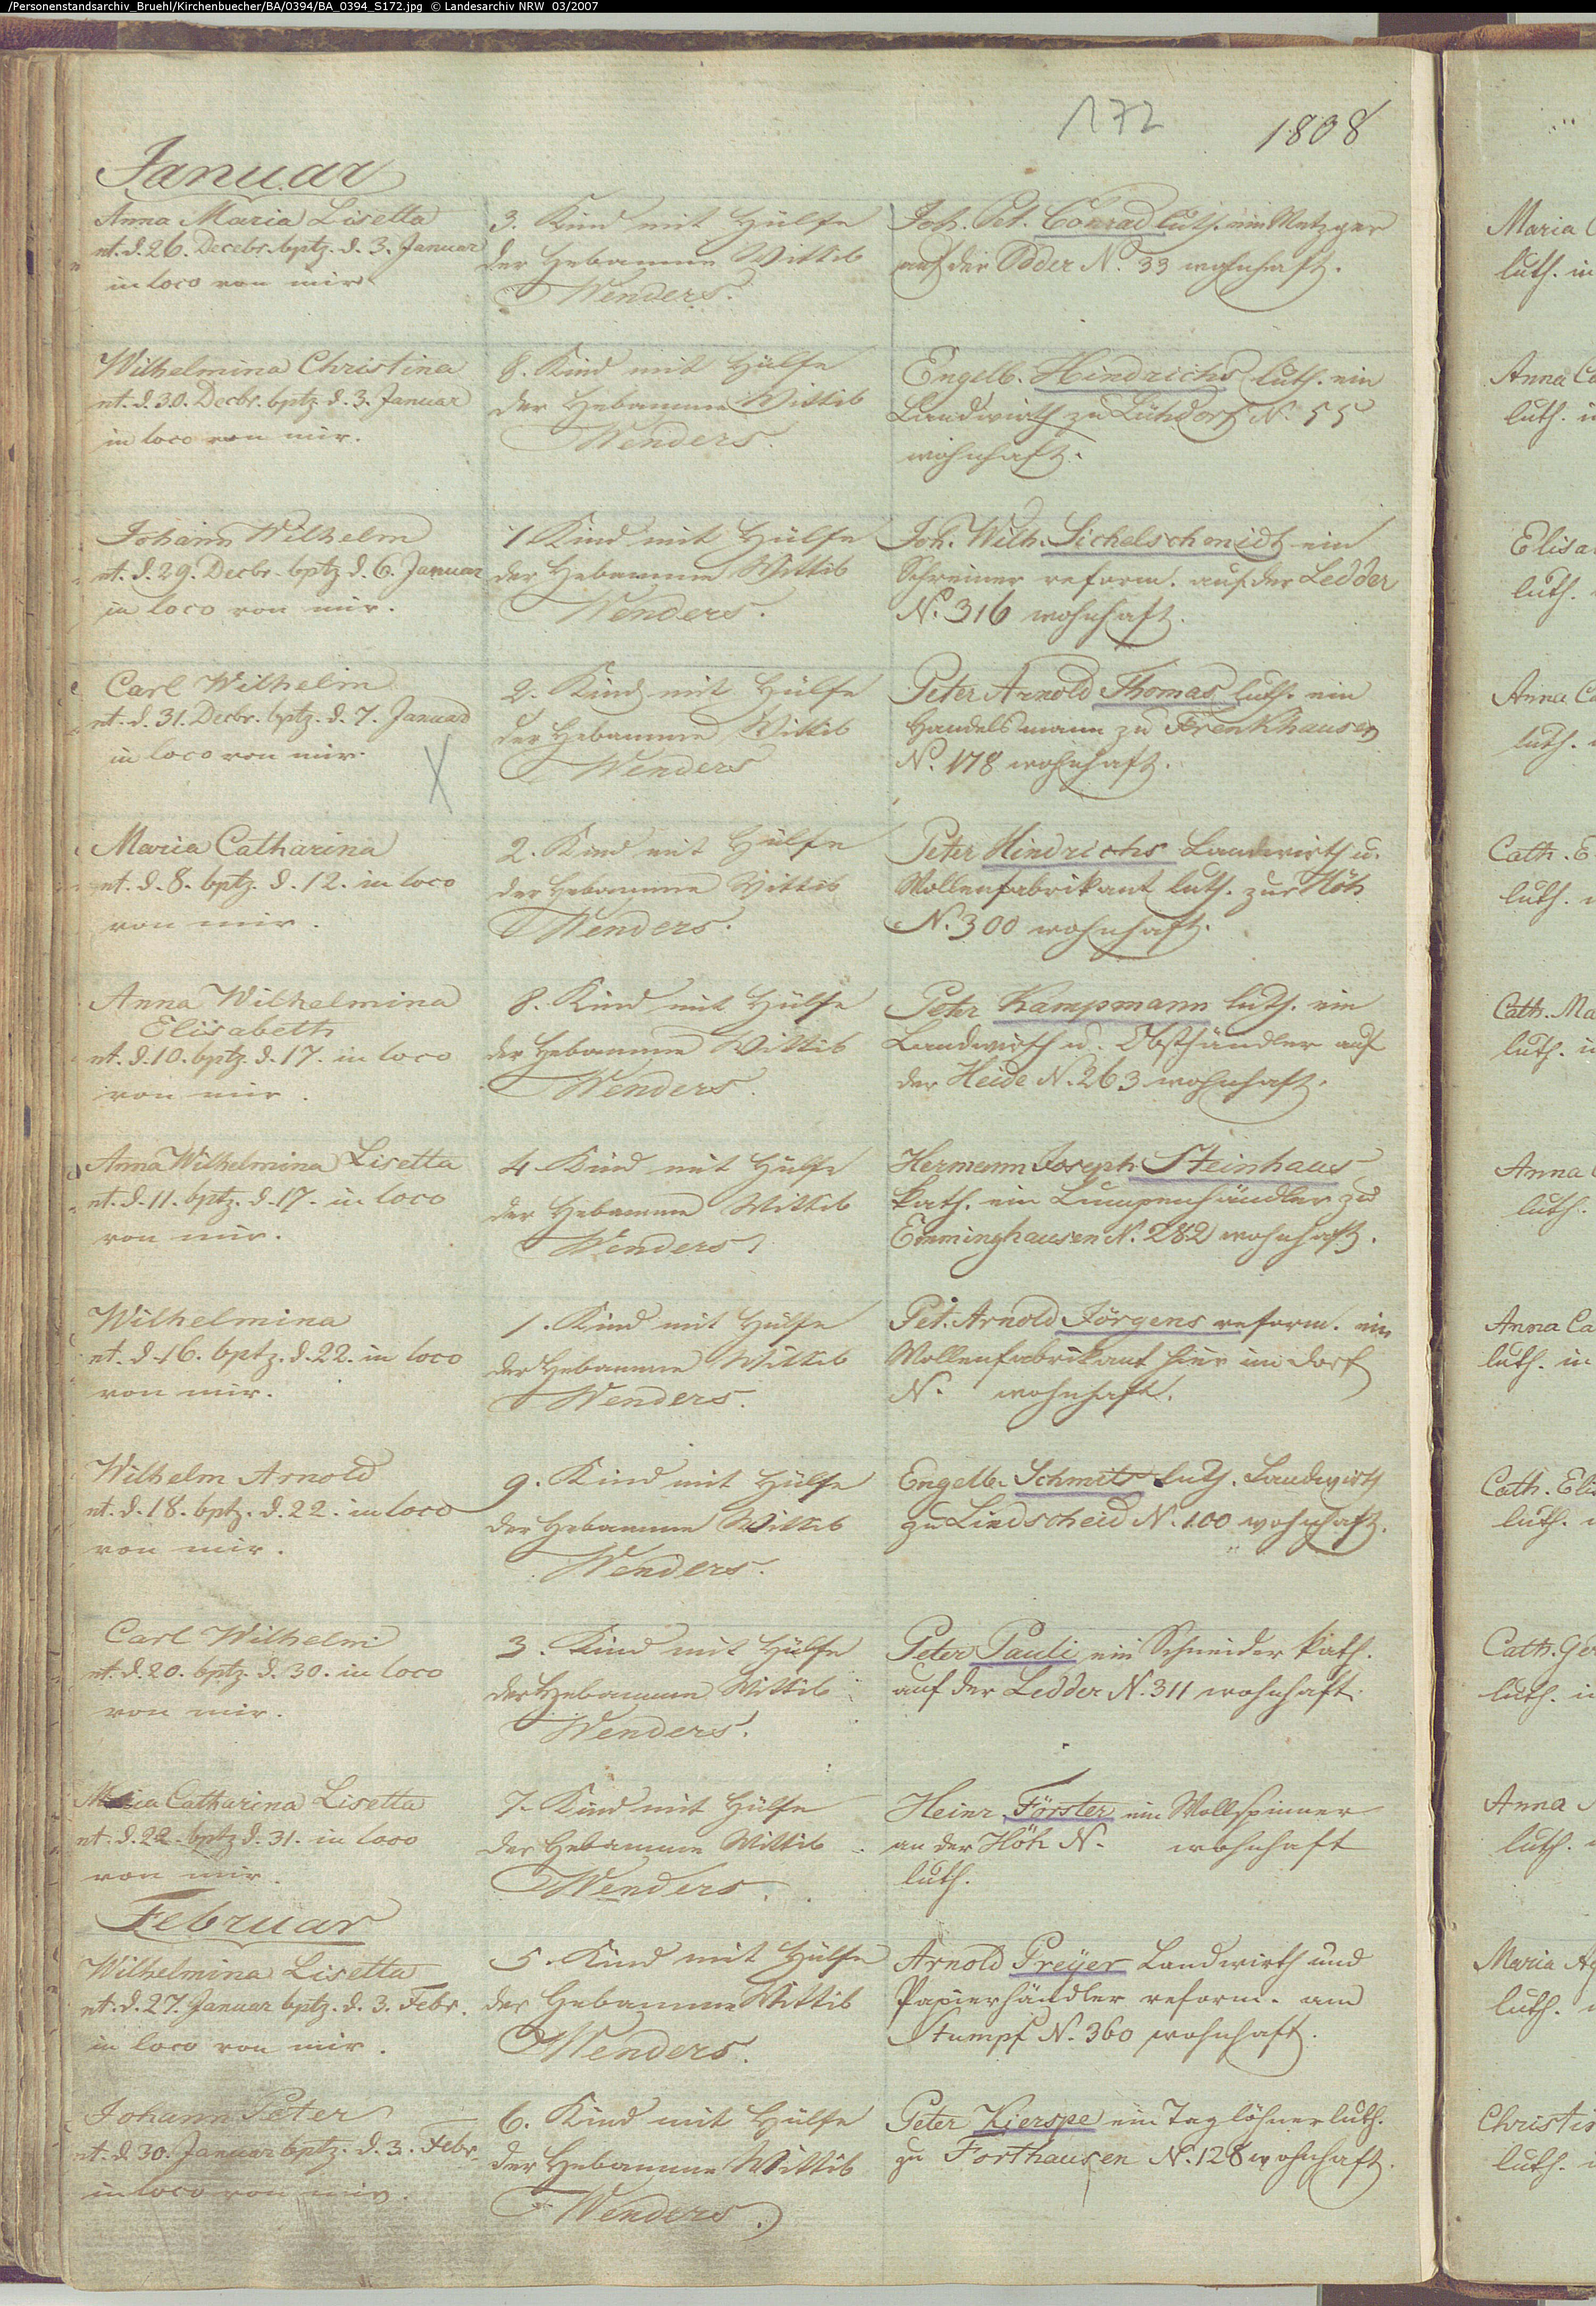 /Personenstandsarchiv_Bruehl/Kirchenbuecher/BA/0394/BA_0394_S172.jpg © Landesarchiv NRW 03/2007
172
1808
Januar
Anna Maria Lisetta
nt. d. 26. Decebr. bptz. d. 3. Januar
in loco von mir.
3. Kind mit Hülfe
der Hebamme Wittib
Wenders.
Joh. Pet. Conrad luth. ein Metzger
auf derÖdder N. 33 wohnhaft.
Wilhelmina Christina
nt. d. 30. Decbr. bptz. d. 3. Januar
in loco von mir.
8. Kind mit Hülfe
der Hebamme Wittib
Wenders.
Engelb. Hindrichs luth. ein
Landwirth zu Lühdorf N. 55
wohnhaft.
Johann Wilhelm
nt. d. 29. Decbr. bptz d. 6. Januar
in loco von mir.
1 Kind mit Hülfe
der Hebamme Wittib
Wenders.
Joh. Wilh. Sichelschmidt ein
Schreiner reform. auf der Ledder
N. 316 wohnhaft.
Carl Wilhelm
nt. d. 31. Decbr. bptz. d. 7. Januar
in loco von mir.
2. Kind mit Hülfe
der Hebamme Wittib
Wenders
Peter Arnold Thomas luth. ein
Handelsmann zu Frenkhausen
N. 178 wohnhaft.
Maria Catharina
nt. d. 8. bptz. d. 12. in loco
von mir.
2. Kind mit Hülfe
der Hebamme Wittib
Wenders.
Peter Hindrichs Landwirth u.
Wollenfabrikant luth. zur Höh
N. 300 wohnhaft.
Anna Wilhelmina
Elisabeth
nt. d. 10. bptz. d. 17. in loco
von mir.
8. Kind mit Hülfe
der Hebamme Wittib
Wenders.
Peter Kampmann luth. ein
Landwirth u. Obsthändler auf
der Heide N. 263 wohnhaft.
Anna Wilhelmina Lisetta
nt. d. 11. bptz. d. 17. in loco
von mir.
4 Kind mit Hülfe
der Hebamme Wittib
Wenders
Hermann Joseph Steinhaus
kath. ein Lumpenhändler zu
Emminghausen N. 282 wohnhaft.
Wilhelmina
nt. d. 16. bptz. d. 22. in loco
von mir.
1. Kind mit Hülfe
der Hebamme Wittib
Wenders.
Pet. Arnold Jörgens reform. ein
Wollenfabrikant hier im Dorf
N. wohnhaft.
Wilhelm Arnold
nt. d. 18. bptz. d. 22. in loco
von mir.
9. Kind mit Hülfe
der Hebamme Wittib
Wenders.
Engelb. Schmits luth. Landwirth
zu Lindscheid N. 100 wohnhaft.
Carl Wilhelm
nt. d. 20. bptz. d. 30. in loco
von mir.
3. Kind mit Hülfe
der Hebamme Wittib
Wenders.
Peter Pauli ein Schneider kath.
auf der Ledder N. 311 wohnhaft.
Maria Catharina Lisetta
nt. d. 22. bptz d. 31. in loco
von mir.
7. Kind mit Hülfe
der Hebamme Wittib
Wenders.
Heinr. Förster ein Wollspinner
an der Höh N. wohnhaft
luth.
Februar
Wilhelmina Lisetta
nt. d. 27. Januar bptz. d. 3. Febr.
in loco von mir.
5. Kind mit Hülfe
der Hebamme Wittib
Wenders.
Arnold Preyer Landwirth und
Papierhändler reform. am
Stumpf N. 360 wohnhaft.
Johann Peter
nt. d. 30. Januar bptz. d. 3. Febr.
in loco von mir.
6. Kind mit Hülfe
der Hebamme Wittib
Wenders.
Peter Kierspe ein Taglöhner luth.
zu Forthausen N. 128 wohnhaft.
Maria
luth. in
Anna
luth.
luth.
Anna
luth.
Cath. E
luth.
Cath. Ma
luth.
Anna
luth.
Anna Ca
luth. in
Cath.
luth.
Cath.
luth.
Anna
luth.
Maria
luth.
luth.